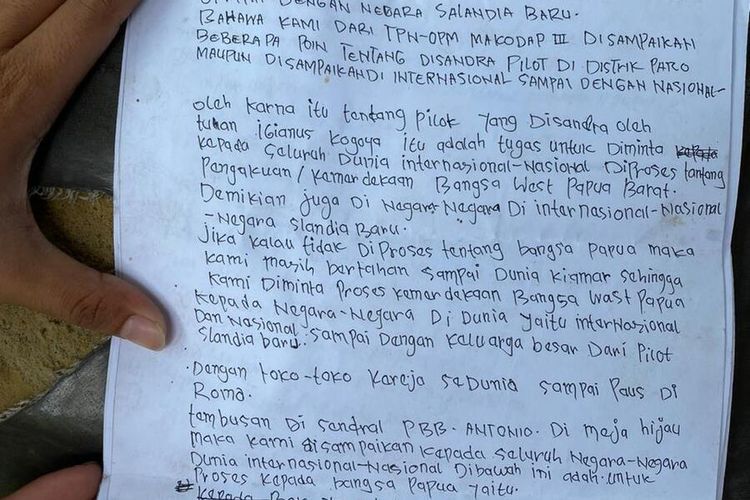 DENGAN NEGARA SALANDIA BARU.
BAHAWA KAMI DARI TPN-OPM MAKODAP III DISAMPAIKAN
BEBERAPA POIN TENTANG DISANDRA PILOT DI DISTRIK PARO
MAUPUN DISAMPAIKANDI INTERNASIONAL SAMPAI DENGAN NASIONAL-
oleh karna itu tentang pilot yang Disandra oleh
tuhan igianus kogoya itu adalah tugas untuk Diminta
kepada seluruh Dunia internasional-Nasional DiProses tantang
Pengakuan/kemardekaan Bangsa West Papua Barat.
Demikian juga Di Negara-Negara Di internasional-Nasional
-Negara slandia Baru.
Jika kalau tidak DiProses tentang bangsa Papua maka
kami masih bartahan sampai Dunia kiamar sehingga
kami Diminta Proses kemardekaan Bangsa Wast Papua
kepada Negara-Negara Di Dunia yaitu internasional
Dan Nasional slandia baru. Sampai Dangan kaluarga besar Dari Pilot
. Dengan toko-toko kareja seDunia sampai Paus Di
Roma.
tambusan Di sandral PBB. ANTONIO. Di meja hijau
maka kami disampaikan kepada seluruh Negara-Negara
Dunia internasional-Nasional Dibawah ini adah untuk
Proses kepada bangsa Papua yaitu.
kepada